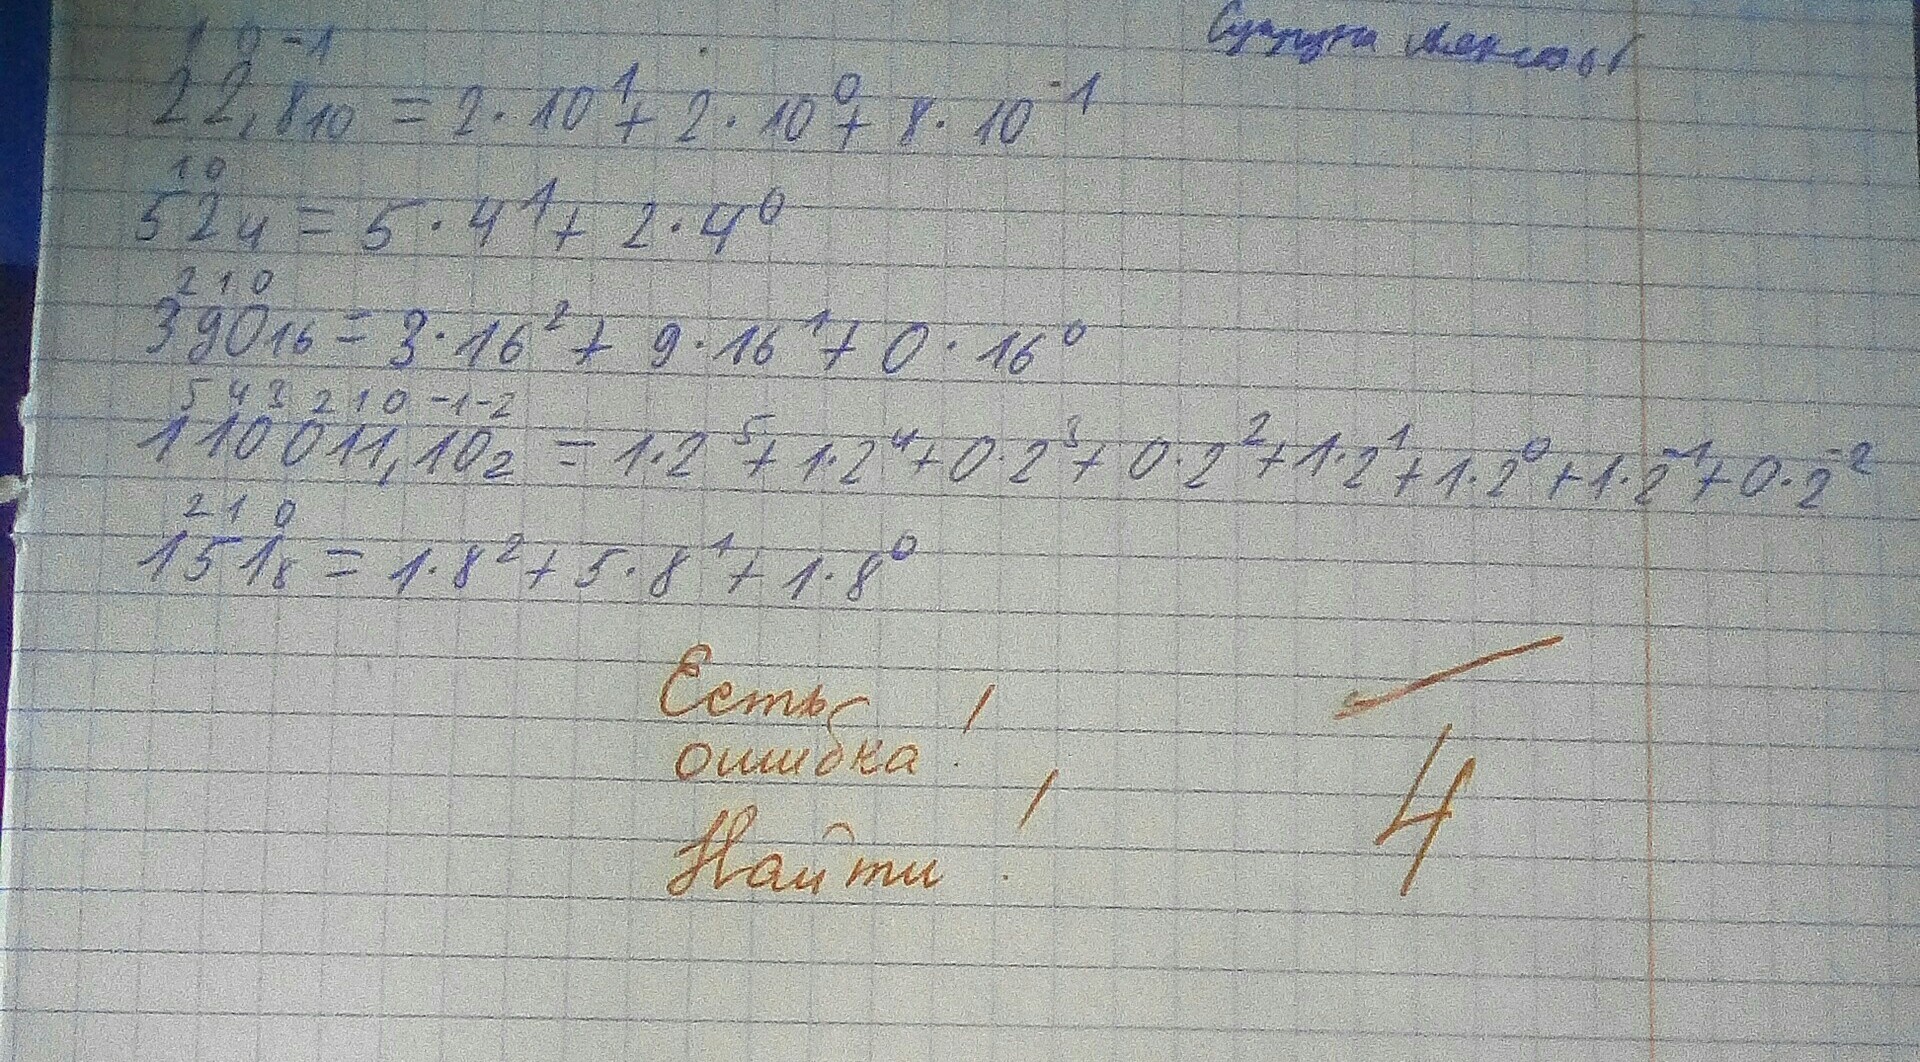 1 0 -1
22,8₁₀ = 2·10¹ + 2·10⁰ + 8·10⁻¹
1 0
52₄ = 5·4¹ + 2·4⁰
2 1 0
390₁₆ = 3·16² + 9·16¹ + 0·16⁰
5 4 3 2 1 0 -1 -2
110011,10₂ = 1·2⁵ + 1·2⁴ + 0·2³ + 0·2² + 1·2¹ + 1·2⁰ + 1·2⁻¹ + 0·2⁻²
2 1 0
151₈ = 1·8² + 5·8¹ + 1·8⁰
Есть
ошибка!
Найти!
4